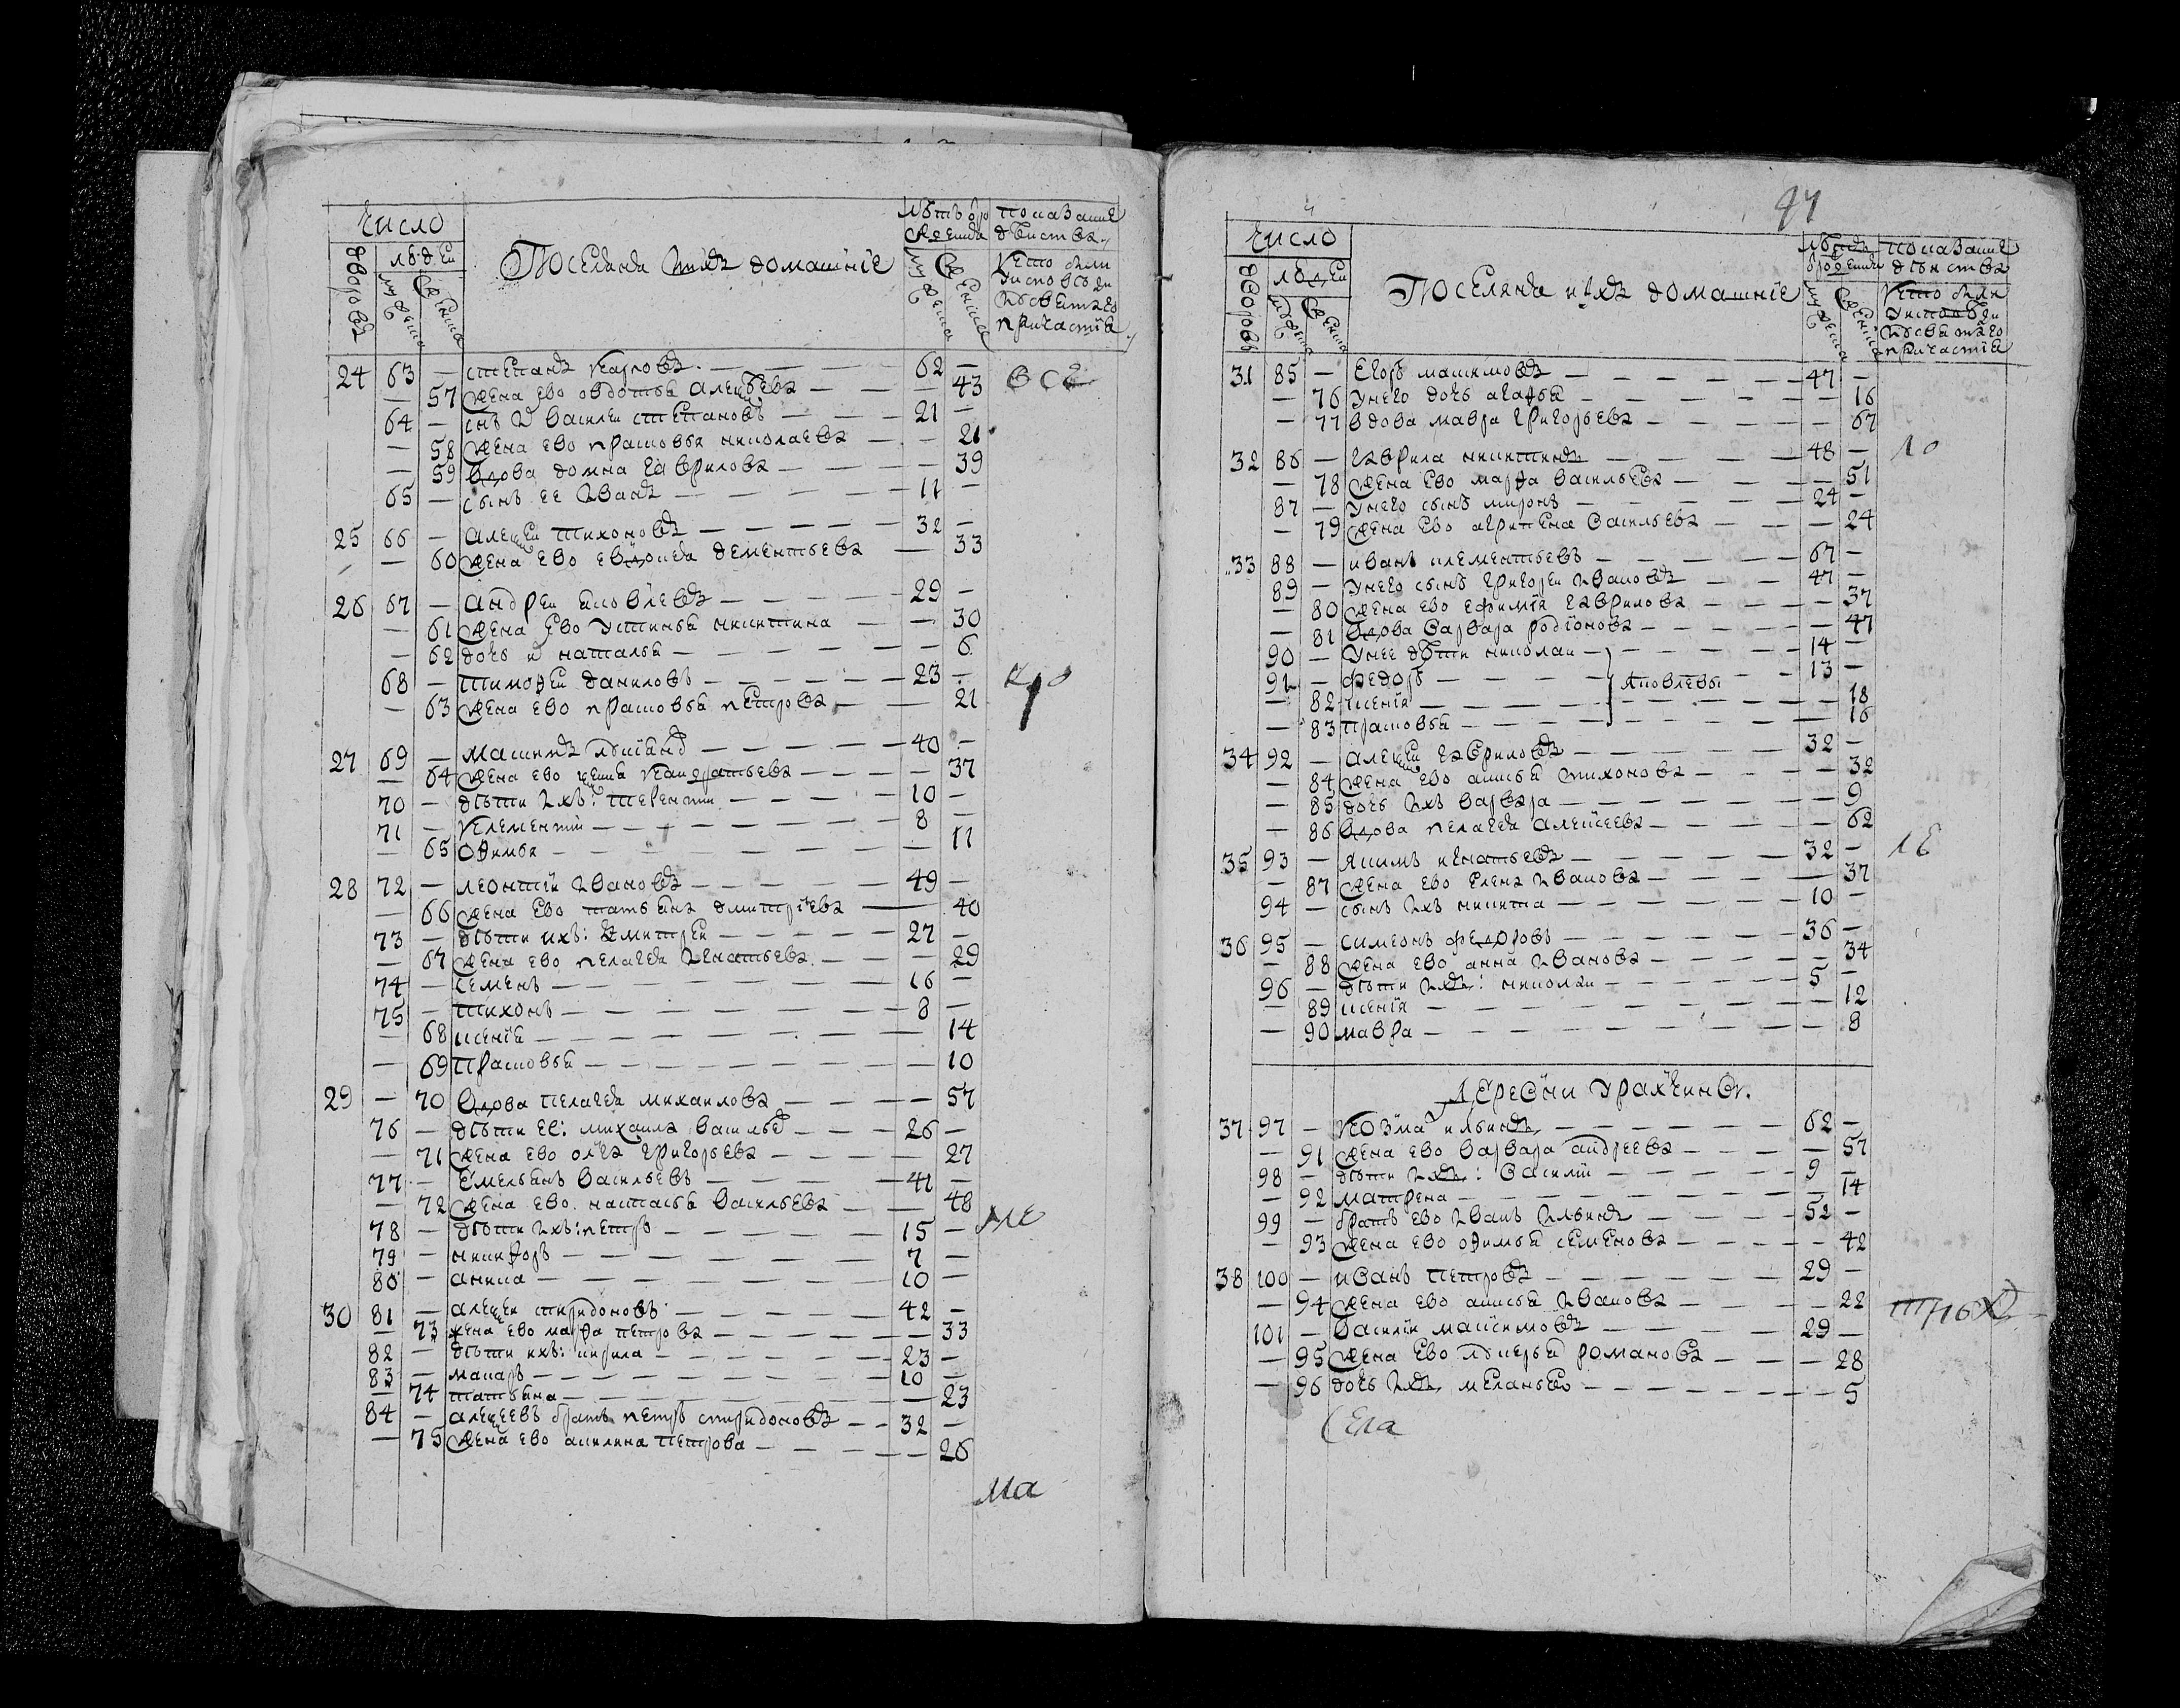 Число
дворовъ
людей
мужеска
женска
Поселяна ихъ домашнїе
лѣтъ рождения
мужеска
женска
показание действа
кто были у исповѣди и свѣтаго причастїѧ
24 63 — степанъ карповъ — 62 —
— 57 жена ево овдотьѧ алеѯѣева — 43
64 — снъ и василеи степановъ — 21 —
— 58 жена ево прасковья николаева — 21
— 59 вдова домна гаврилова — 39
65 — сынъ ее иванъ — 11 —
25 66 — алеѯеи тихоновъ — 32 —
— 60 жена ево евдокиѧ дементьева — 33
26 67 — андреи ѧковлевъ — 29 —
— 61 жена ево устиньѧ никитина — 30
— 62 дочь и натальѧ — 6
68 — тимоѳеи даниловъ — 23 —
— 63 жена ево прасковьѧ петрова — 21
27 69 — — 40 —
— 64 жена ево — 37
70 — дѣти ихъ: терентии — 10 —
71 — клементїи — 8 —
— 65 оѳимья — 11
28 72 — леонтїи ивановъ — 49 —
— 66 жена ево татьѧна дмитрїева — 40
73 — дѣти ихъ: дмитреи — 27 —
— 67 жена ево пелагеѧ игнатьева — 29
74 — семенъ — 16 —
75 — тихонъ — 8 —
— 68 ксенїѧ — 14
— 69 прасковьѧ — 10
29 — 70 вдова пелагеѧ михаилова — 57
76 — дѣти ее: михаила васильев — 26 —
— 71 жена ево олга григорьева — 27
77 — емельѧнъ васильевъ — 41 —
— 72 жена ево настасьѧ васильева — 48
78 — дѣти ихъ: петръ — 15 —
79 — никиѳоръ — 7 —
80 — аника — 10 —
30 81 — алеѯеи спиридоновъ — 42 —
— 73 жена ево марѳа петрова — 33
82 — дѣти ихъ: кирила — 23 —
83 — макаръ — 10 —
— 74 татьѧна — 23
84 — алеѯеевъ братъ петръ спиридоновъ — 32 —
— 75 жена ево акилина петрова — 26
всѣ
ма
Число
дворовъ
людеи
мужеска
женска
Поселяна ихъ домашнїе
лѣтъ рождения
мужеска
женска
показание действа
кто были у исповѣди и свѣтаго причастїѧ
31 85 — егоръ максимовъ — 47 —
— 76 у него дочь агаѳьѧ — 16
— 77 вдова мавра григорьева — 67
32 86 — гаврила никитинъ — 48 —
— 78 жена ево марѳа васильева — 51
87 — у него сынъ миронъ — 24 —
— 79 жена ево агрипена васильева — 24
33 88 — иванъ клементьевъ — 67 —
89 — у него сынъ григореи ивановъ — 47 —
— 80 жена ево ефимїя гаврилова — 37
— 81 вдова варвара родїонова — 47
90 — у нее дѣти николаи — 14 —
91 — федоръ — яковлевы 13 —
— 82 ксенїя — 18
— 83 прасковьѧ — 16
34 92 — алеѯеи гавриловъ — 32 —
— 84 жена ево анисьѧ тихонова — 32
— 85 дочь ихъ варвара — 9
— 86 вдова пелагеѧ алексеева — 62
35 93 — якимъ игнатьевъ — 32 —
— 87 жена ево елена иванова — 37
94 — сынъ ихъ никита — 10 —
36 95 — симеонъ федоровъ — 36 —
— 88 жена ево анна иванова — 34
96 — дѣти ихъ: николаи — 5 —
— 89 ксенїя — 12
— 90 мавра — 8
деревни
37 97 — козма ильинъ — 62 —
— 91 жена ево варвара андреева — 57
98 — дѣти ихъ: василїи — 9 —
— 92 матрена — 14
99 — братъ ево иванъ ильинъ — 52 —
— 93 жена ево оѳимьѧ семенова — 42
38 100 — иванъ петровъ — 29 —
— 94 жена ево анисьѧ иванова — 22
101 — василїи максимовъ — 29 —
— 95 жена ево лукерьѧ романова — 28
— 96 дочь ихъ меланьѧ — 5
села